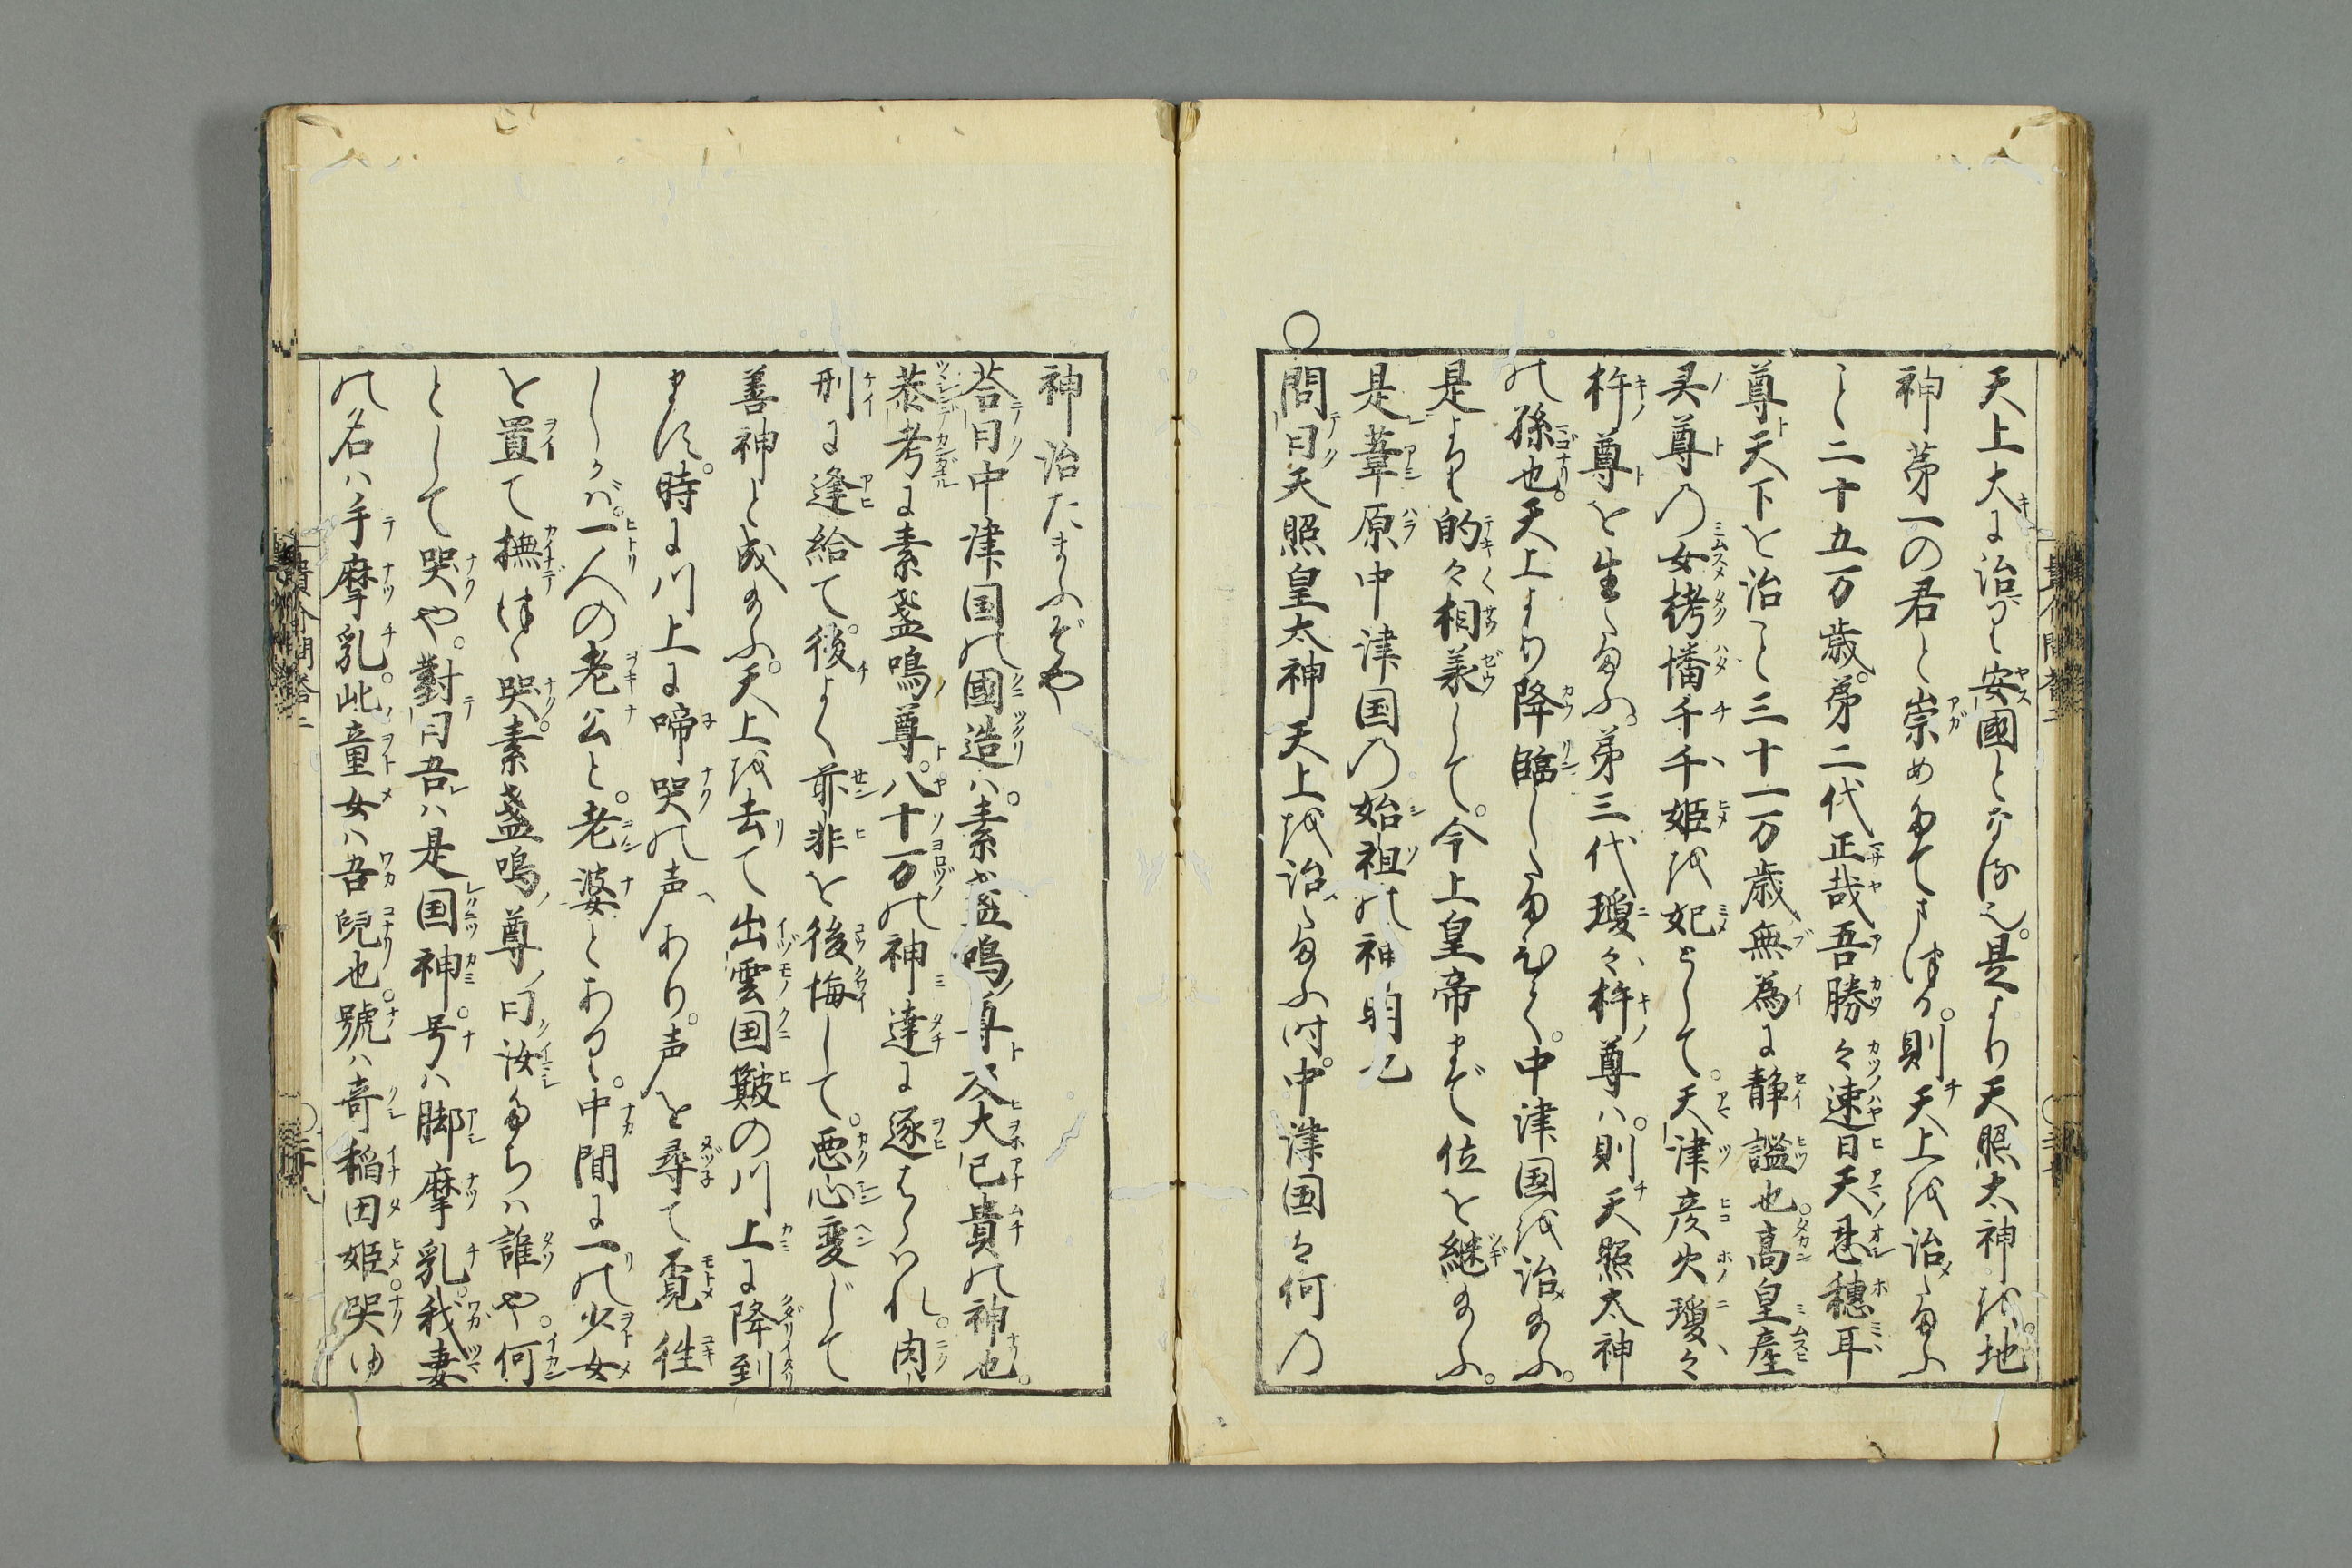 天上大に治りて安國となる也。是より天照太神を。地
神第一の君と崇め奉てまつる。則天上を治したまふ
こと二十五万歳。第二代正哉吾勝々速日天忍穂耳
尊天下を治こと三十一万歳無為に静謐也。高皇産
灵尊の女栲幡千千姫を妃として。天津彦火瓊々
杵尊を生たまふ。第三代瓊々杵尊ハ。則天照太神
の孫也。天上より降臨したまひて。中津国を治め給ふ。
是より的々相羕して。今上皇帝まで位を継給ふ。
是葦原中津国の始祖の神明也
○問曰天照皇太神天上を治したまふ时。中津国は何の
神治たまふぞや
荅曰中津国の國造ハ。素盞嗚尊ト及大己貴の神也。
恭考に素盞嗚尊。八十万の神達に逐はらはれ。肉
刑に逢給て。後よく前非を後悔して。悪心変じて
善神と成給ふ。天上を去て出雲国簸の川上に降到
ます。時に川上に啼哭の声あり。声を尋て覓徃
しかば。一人の老公と。老婆とありて。中間に一の少女
を置て撫つゝ哭。素盞嗚尊曰汝たちハ誰や。何
として哭や。對曰吾ハ是国神。号ハ脚摩乳。我妻
の名ハ手摩乳。此童女ハ吾兒也。號ハ奇稲田姫。哭ゆ